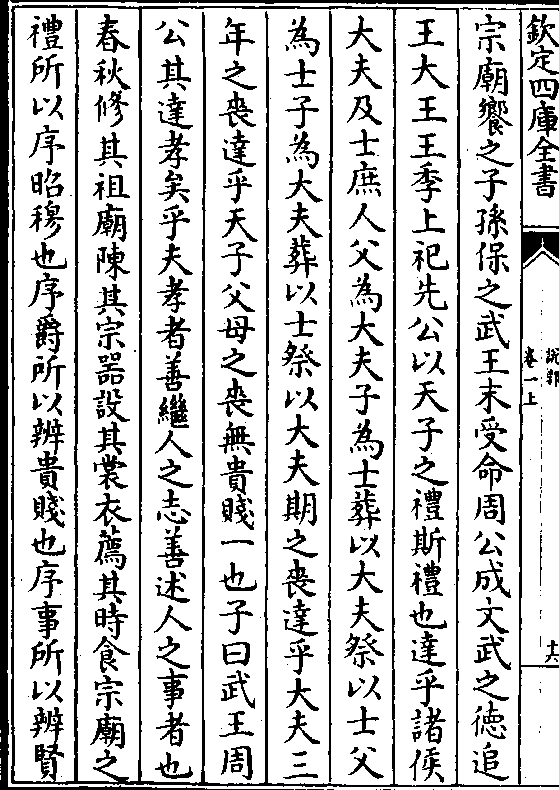 欽定四庫全書
說郛
卷一上
十六
宗廟饗之子孫保之武王末受命周公成文武之德追
王大王王季上祀先公以天子之禮斯禮也達乎諸侯
大夫及士庶人父為大夫子為士葬以大夫祭以士父
為士子為大夫葬以士祭以大夫期之喪達乎大夫三
年之喪達乎天子父母之喪無貴賤一也子曰武王周
公其達孝矣乎夫孝者善繼人之志善述人之事者也
春秋修其祖廟陳其宗器設其裳衣薦其時食宗廟之
禮所以序昭穆也序爵所以辨貴賤也序事所以辨賢